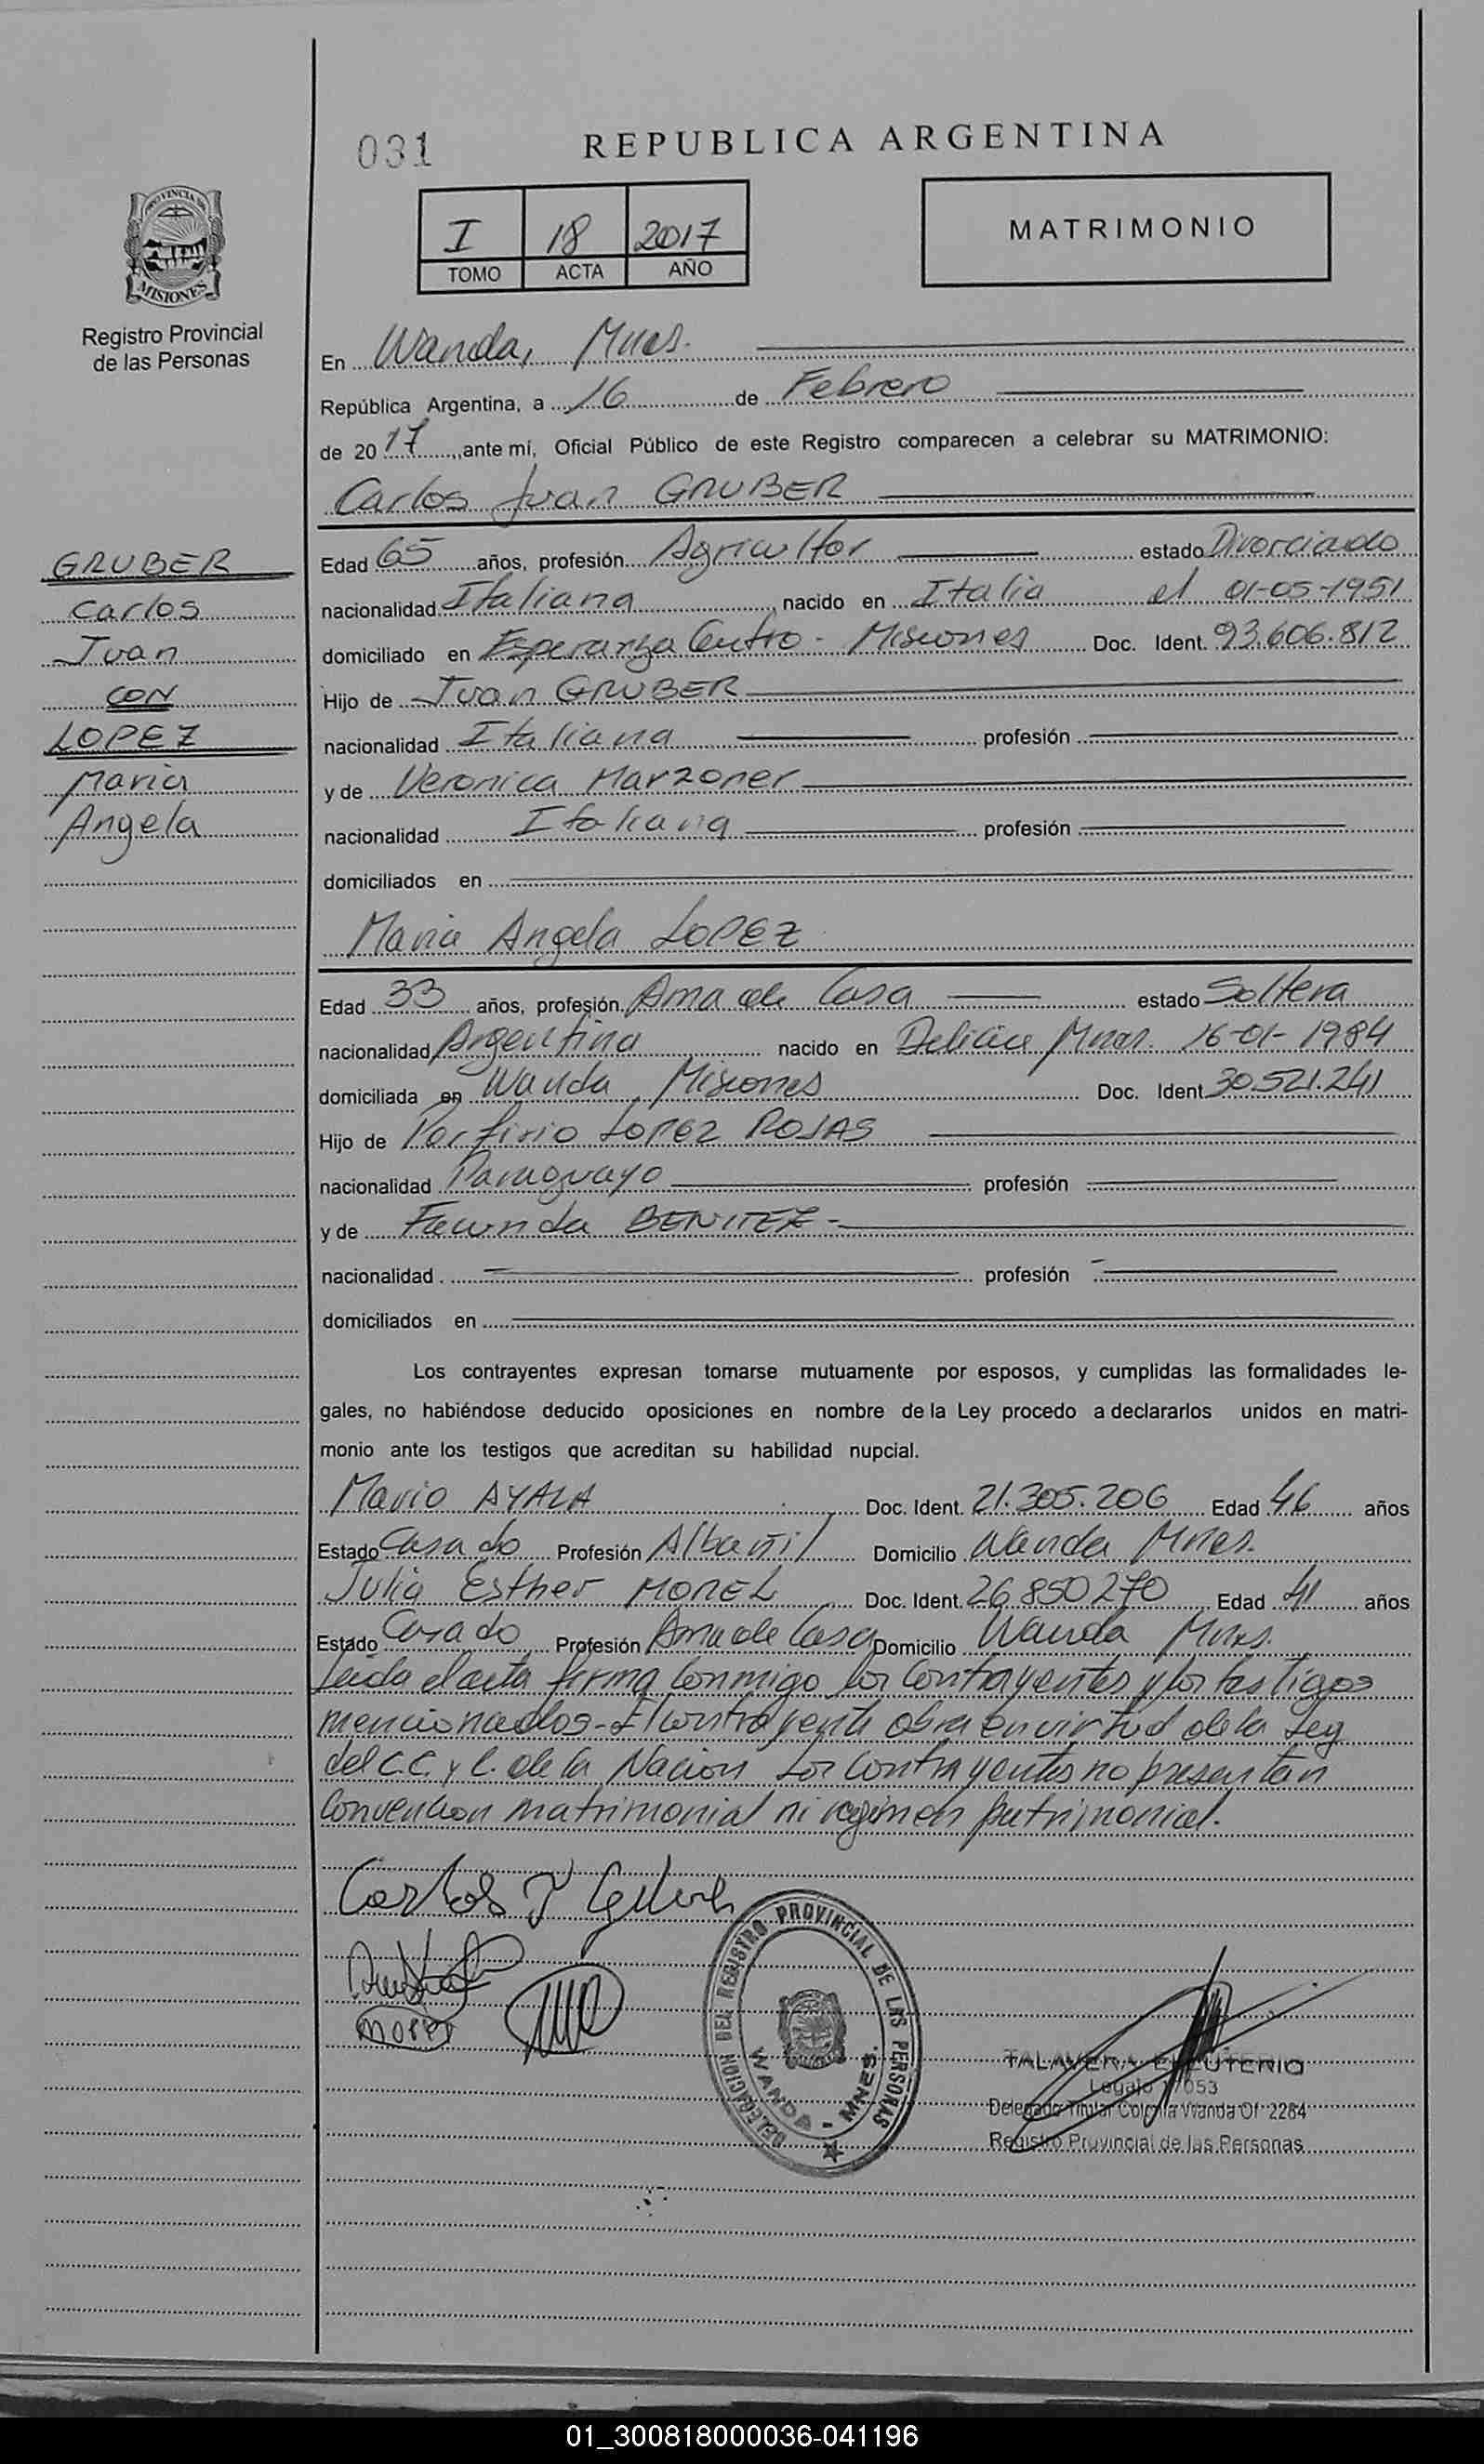 031
REPUBLICA ARGENTINA
I 18 2017
TOMO ACTA AÑO
MATRIMONIO
PROVINCIA DE
MISIONES
Registro Provincial
de las Personas
En Wanda, Mnes.
República Argentina, a 16 de Febrero
de 2017, ante mí, Oficial Público de este Registro comparecen a celebrar su MATRIMONIO:
Carlos Juan GRUBER
GRUBER
Carlos
Juan
CON
LOPEZ
Maria
Angela
Edad 65 años, profesión Agricultor estado Divorciado
nacionalidad Italiana, nacido en Italia el 01-05-1951
domiciliado en Esperanza Centro - Misiones Doc. Ident. 93.606.812
Hijo de Juan GRUBER
nacionalidad Italiana profesión
y de Veronica Marzoner
nacionalidad Italiana profesión
domiciliados en
Maria Angela LOPEZ
Edad 33 años, profesión Ama de Casa estado Soltera
nacionalidad Argentina nacido en Delicia Mnes. 16-01-1984
domiciliada en Wanda, Misiones Doc. Ident 30.521.241
Hijo de Porfirio LOPEZ ROJAS
nacionalidad Paraguayo profesión
y de Facunda BENITEZ -
nacionalidad profesión
domiciliados en
Los contrayentes expresan tomarse mutuamente por esposos, y cumplidas las formalidades le-
gales, no habiéndose deducido oposiciones en nombre de la Ley procedo a declararlos unidos en matri-
monio ante los testigos que acreditan su habilidad nupcial.
Mario AYALA Doc. Ident. 21.305.206 Edad 46 años
Estado Casado Profesión Albañil Domicilio Wanda Mnes.
Julia Esther MOREL Doc. Ident. 26.850270 Edad 41 años
Estado Casado Profesión Ama de Casa Domicilio Wanda Mnes.
Leida el acta firma conmigo los contrayentes y los testigos
mencionados - El contrayente obra en virtud de la Ley
del C.C. y C. de la Nacion Los contrayentes no presentan
Convencion matrimonial ni regimen patrimonial.
Carlos J
Morel
DELEGACION DEL REGISTRO PROVINCIAL DE LAS PERSONAS
WANDA - MNES.
TALAVERA ELEUTERIO
Legajo 7053
Delegado Titular Colonia Wanda Of 2284
Registro Provincial de las Personas
01_300818000036-041196